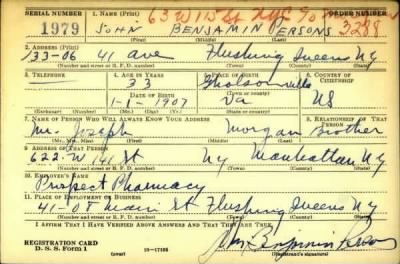 SERIAL NUMBER
1. NAME (Print)
63 W 115 St NYC
ORDER NUMBER
1979
JOHN BENJAMIN PERSONS
3288
(First) (Middle) (Last)
2. ADDRESS (Print)
133-06 41 Ave Flushing Queens NY
(Number and street or R. F. D. number) (Town) (County) (State)
3. TELEPHONE
4. AGE IN YEARS
33
5. PLACE OF BIRTH
6. COUNTRY OF CITIZENSHIP
DATE OF BIRTH
(Town or county)
1-1-1907
Va
US
(Exchange) (Number)
(Mo.) (Day) (Yr.)
(State or country)
7. NAME OF PERSON WHO WILL ALWAYS KNOW YOUR ADDRESS
8. RELATIONSHIP OF THAT PERSON
Mr. Joseph Morgan Brother
(Mr., Mrs., Miss) (First) (Middle) (Last)
9. ADDRESS OF THAT PERSON
622-W 141 St NY Manhattan NY
(Number and street or R. F. D. number) (Town) (County) (State)
10. EMPLOYER'S NAME
Prospect Pharmacy
11. PLACE OF EMPLOYMENT OR BUSINESS
41-08 Main St Flushing Queens NY
(Number and street or R. F. D. number) (Town) (County) (State)
I AFFIRM THAT I HAVE VERIFIED ABOVE ANSWERS AND THAT THEY ARE TRUE.
REGISTRATION CARD
D. S. S. Form 1
16-17105
John Benjamin Persons
(Registrant's signature)